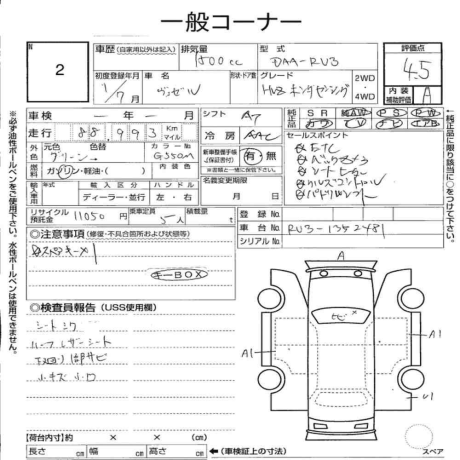 一般コーナー
N
2
車歴 (自家用以外は記入)
排気量
1500cc
型式
DAA-RU3
評価点
4.5
初度登録年月
1/7月
車名
ヴェゼル
形状・ドア数
グレード
2WD・4WD
内装補助評価
A
車検 ー年ー月
シフト
A7
純正品
SR
AW
PS
PW
走行 88,993 Km マイル
冷房
AAC
外装色
元色
グリーン→
色替
カラーNo
G550M
内装色
新車整備手帳(保証書付)
有・無
セールスポイント
ETC
バックカメラ
シートヒーター
クルーズコントロール
燃料
ガソリン・軽油・( )
輸入車用
輸入区分
ディーラー・並行
ハンドル
左・右
名義変更期限
月 日
リサイクル預託金
11050円
乗車定員
5人
積載量
t
登録No.
車台No.
RU3-1352481
シリアルNo.
◎注意事項 (修復・不具合箇所および状態等)
スペアキー×1
キーBOX
◎検査員報告 (USS使用欄)
シートシワ
ハーフレザーシート
下回り部サビ
小キズ 小凹
A
ヒビ×
A1
A1
U1
【荷台内寸】約 × × (cm)
長さ cm 幅 cm 高さ cm ←(車検証上の寸法)
スペア
※必ず油性ボールペンをご使用下さい。水性ボールペンは使用できません。
↑純正品に限り該当に○をつけて下さい。